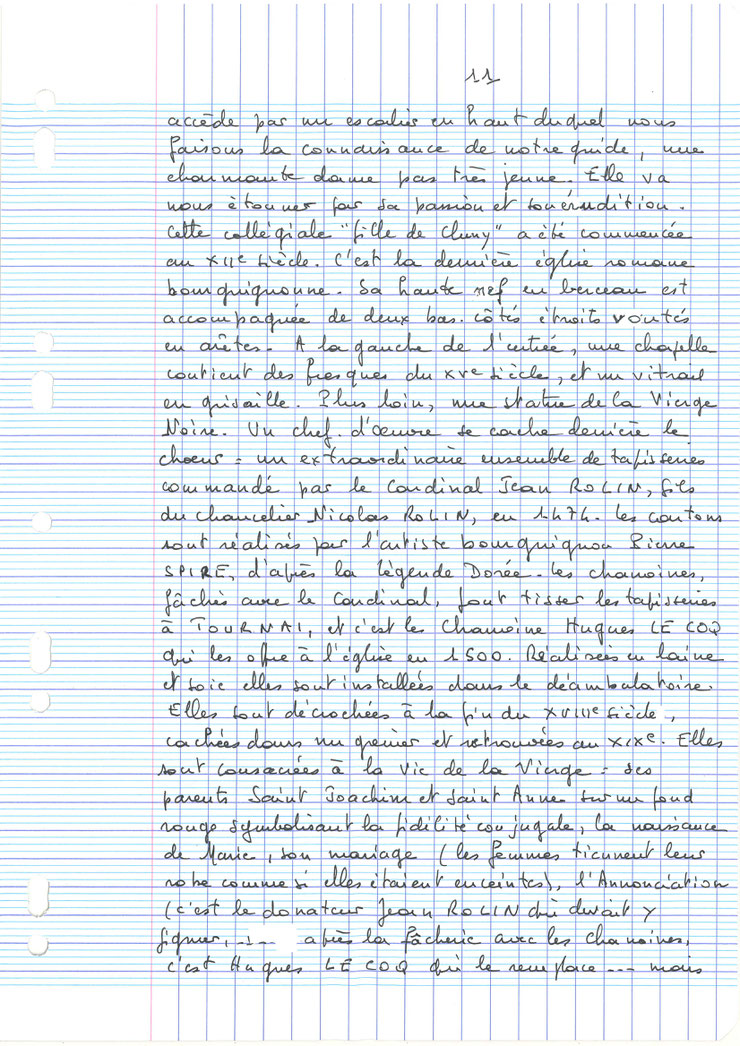 11
accède par un escalier en haut duquel nous
faisons la connaissance de notre guide, une
charmante dame pas très jeune. Elle va
nous étonner par sa passion et son érudition.
Cette collégiale "fille de Cluny" a été commencée
au XIIe siècle. C'est la dernière église romane
bourguignonne. Sa haute nef en berceau est
accompagnée de deux bas-côtés étroits voûtés
en arêtes. A la gauche de l'entrée, une chapelle
contient des fresques du XVe siècle, et un vitrail
en grisaille. Plus loin, une statue de la Vierge
Noire. Un chef-d'œuvre se cache derrière le
chœur = un extraordinaire ensemble de tapisseries
commandé par le Cardinal Jean ROLIN, fils
du chancelier Nicolas ROLIN, en 1474. Les cartons
sont réalisés par l'artiste bourguignon Pierre
SPIRE, d'après la légende Dorée. Les chanoines,
fâchés avec le Cardinal, font tisser les tapisseries
à TOURNAI, et c'est le Chanoine Hugues LE COQ
qui les offre à l'église en 1500. Réalisées en laine
et soie elles sont installées dans le déambulatoire.
Elles sont décrochées à la fin du XVIIIe siècle,
cachées dans un grenier et retrouvées au XIXe. Elles
sont consacrées à la vie de la Vierge = ses
parents Saint Joachim et Saint Anne sur un fond
rouge symbolisant la fidélité conjugale, la naissance
de Marie, son mariage (les femmes tiennent leur
robe comme si elles étaient enceintes), l'Annonciation
(c'est le donateur Jean ROLIN qui devait y
figurer, après la fâcherie avec les chanoines,
c'est Hugues LE COQ qui le remplace... mais